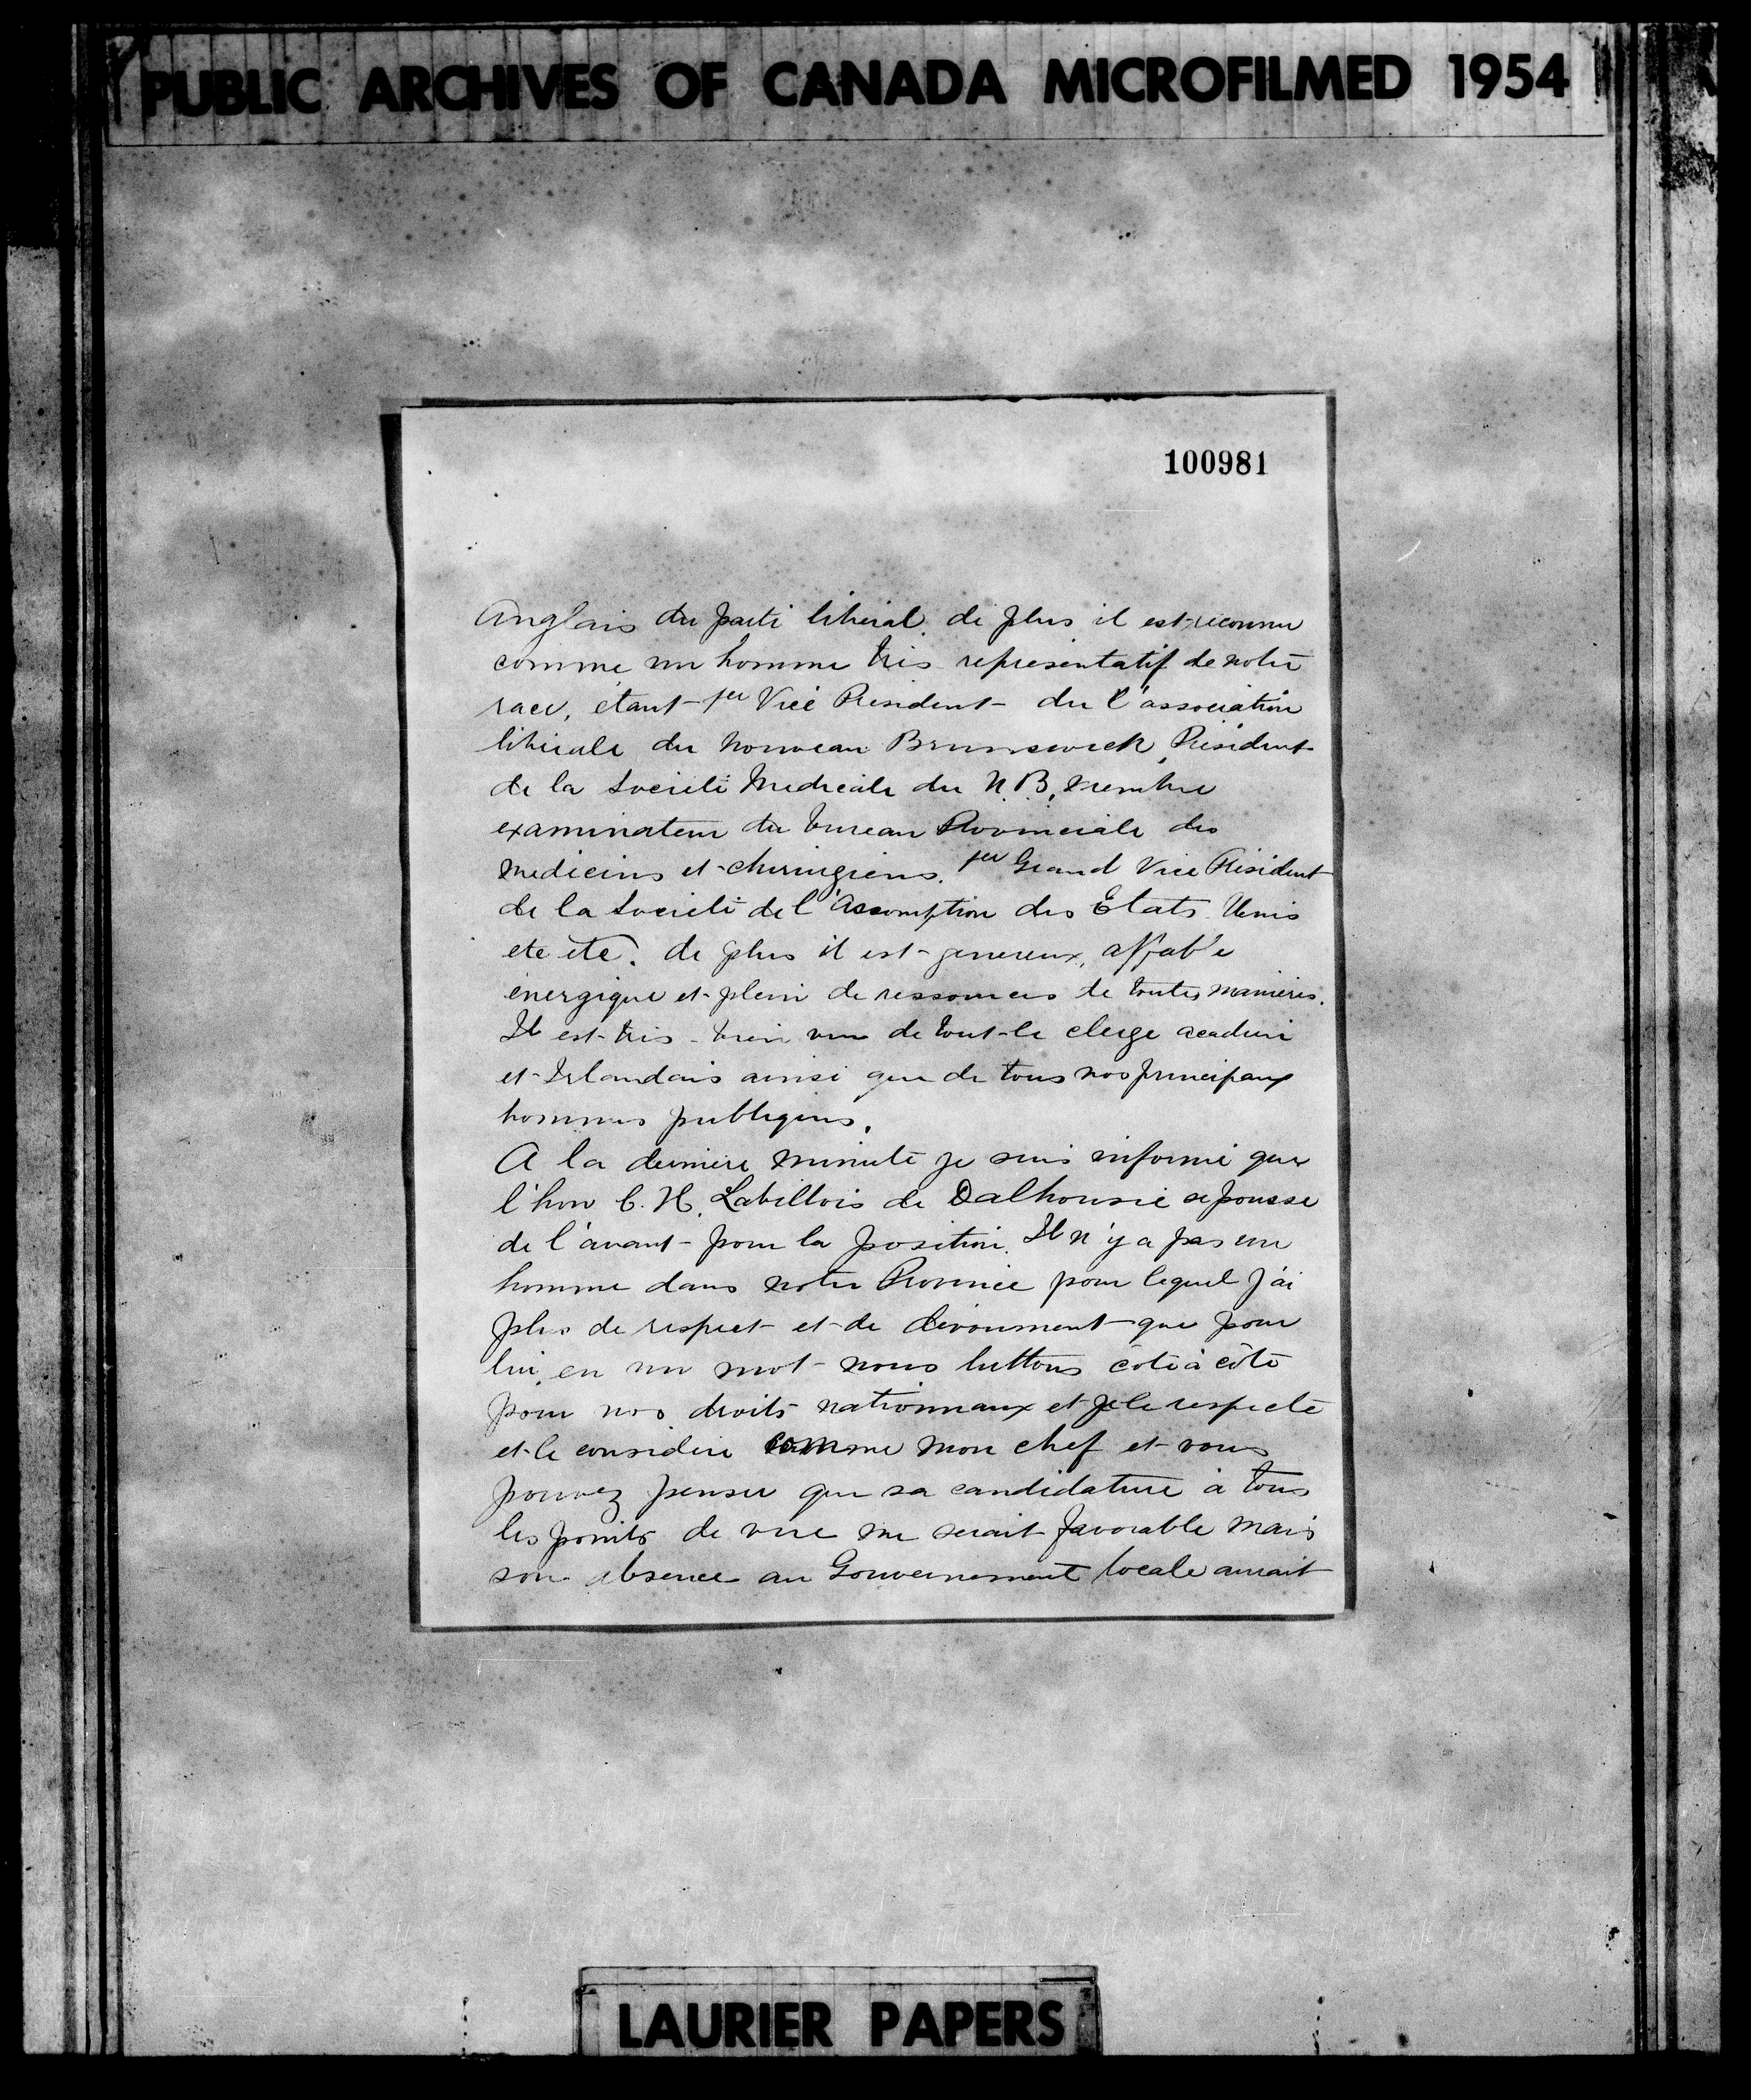 PUBLIC ARCHIVES OF CANADA MICROFILMED 1954
100981
Anglais du parti libéral. de plus il est reconnu
comme un homme très representatif de notre
race, étant 1er Vice President de l'association
libérale du Nouveau Brunswick, Président
de la Société Medicale du N.B, membre
examinateur du bureau Provinciale des
medicins et chirurgiens. 1er Grand Vice Président
de la Société de l'Assomption des Etats Unis
etc etc. de plus il est genereux, affable
énergique et plein de ressources de toutes manières.
Il est très bien vu de tout le clergé acadien
et Irlandais ainsi que de tous nos principaux
hommes publiques.
A la derniere minute je suis informé que
l'hon C. H. Labillois de Dalhousie se pousse
de l'avant pour la position. Il n'y a pas un
homme dans notre Province pour lequel j'ai
plus de respect et de dévoument que pour
lui, en un mot nous luttons côte à côte
pour nos droits nationnaux et je le respecte
et le considère comme mon chef et vous
pouvez penser que sa candidature à tous
les points de vue me serait favorable mais
son absence au Gouvernement locale aurait
LAURIER PAPERS